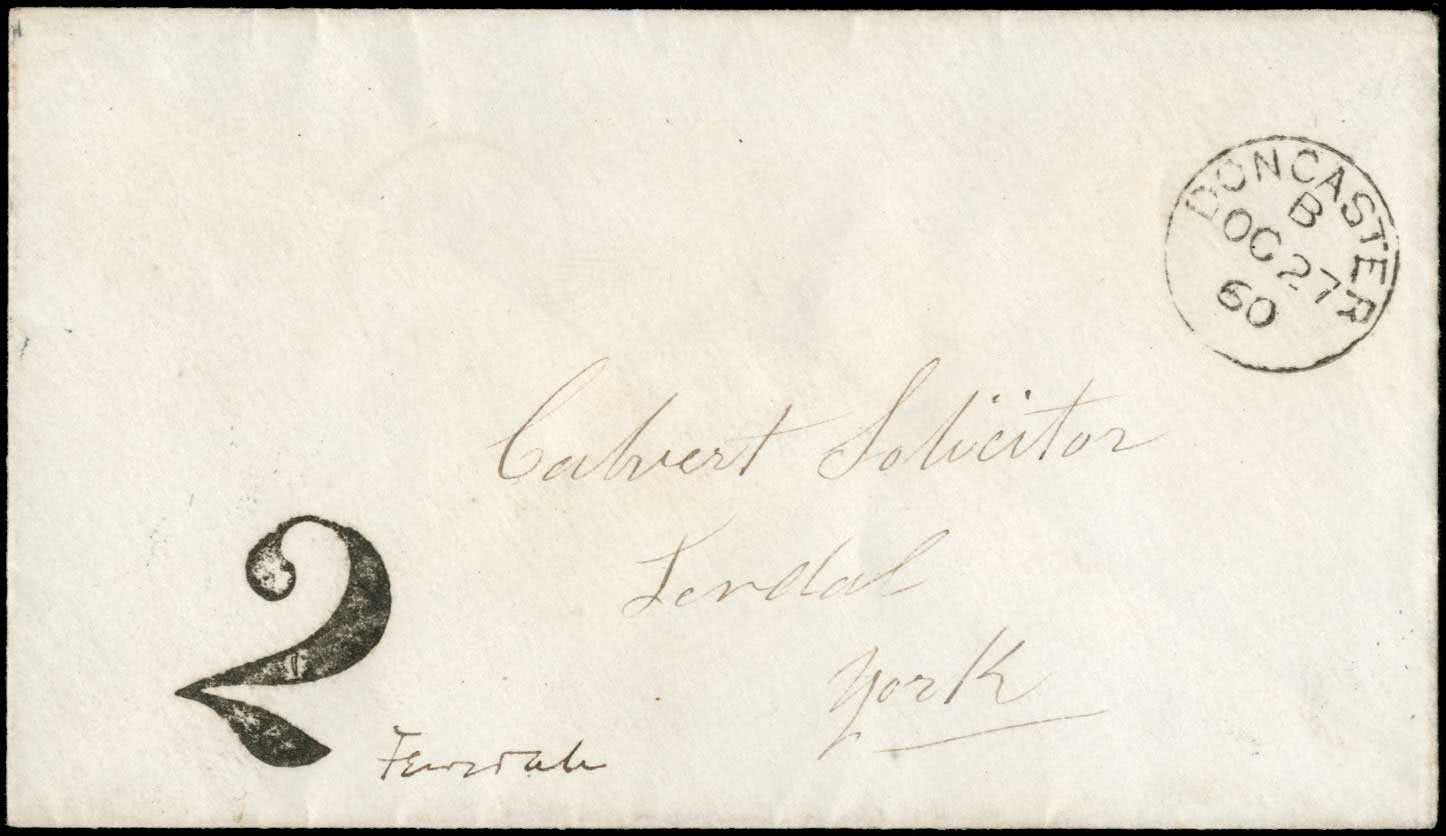 DONCASTER
B
OC 27
60
Calvert Solicitor
Lendal
York
2